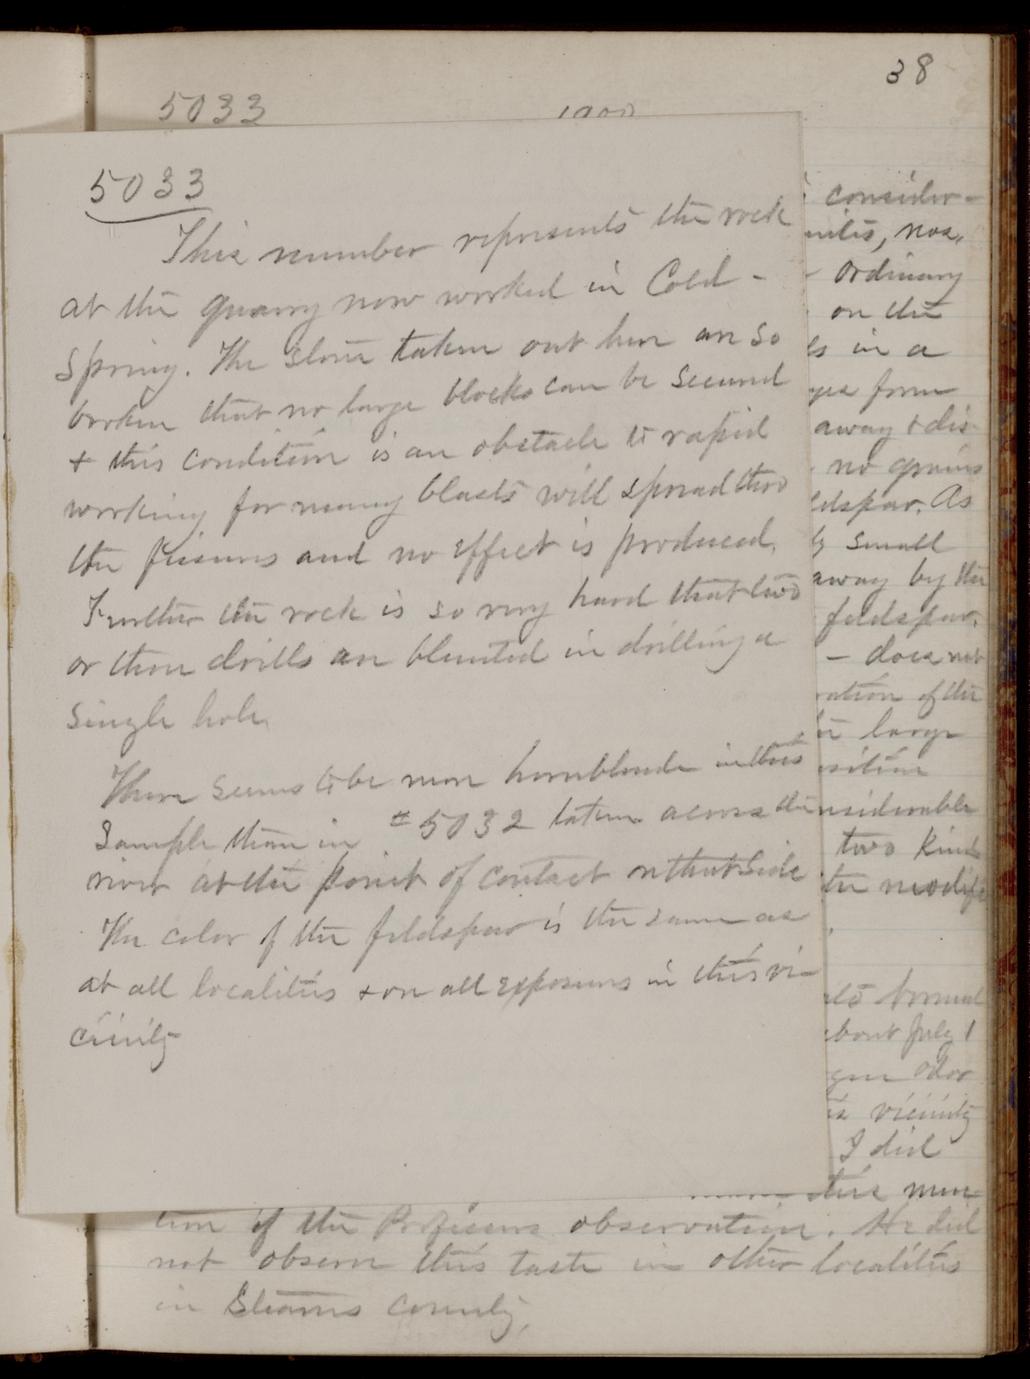 38
5033
5033
This number represents the rock
at the quarry now worked in Cold-
spring. The stone taken out here are so
broken that no large blocks can be secured
+ this condition is an obstacle to rapid
working for many blasts will spread thro
the fissures and no effect is produced.
Further the rock is so very hard that two
or three drills are blunted in drilling a
single hole.
There seems to be more hornblende in this
sample than in #5032 taken across the
river at the point of contact on that side
The color of the feldspar is the same as
at all localities + on all exposures in this vi-
cinity
consider-
nos.
ordinary
on the
in a
form
away + dis-
no grains
As
small
away by the
feldspar.
– does not
of the
large
two kinds
the modifi
about July 1
odor
vicinity
I did
this men-
tion of the Professors observation. He did
not observe this taste in other localities
in Stearns County.